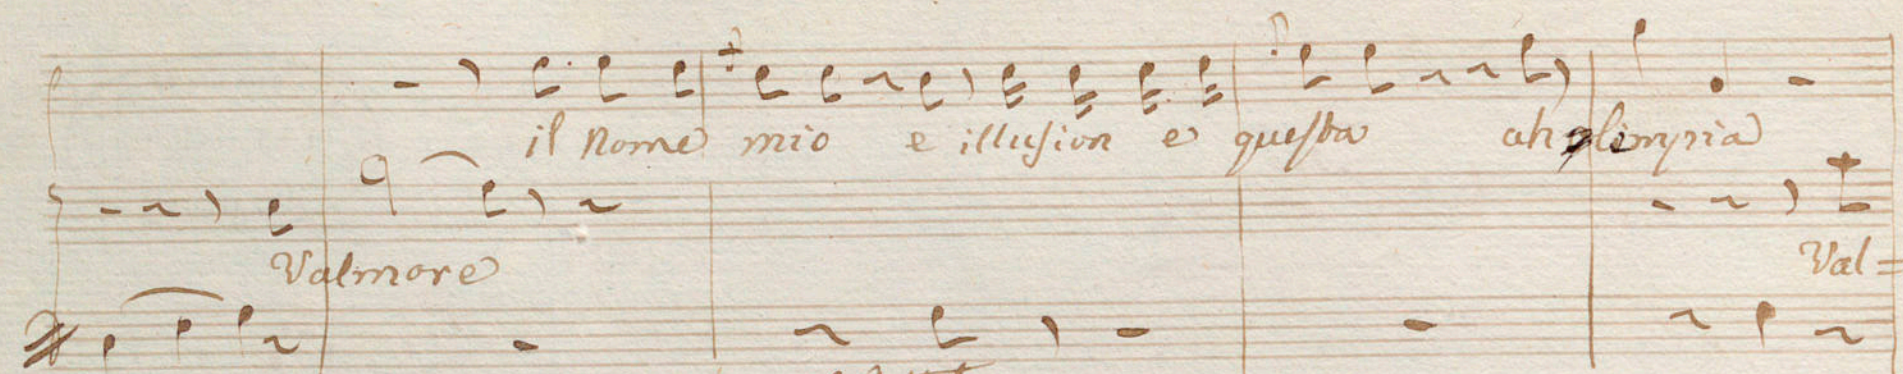 il nome mio e illusion e questa ah olimpia
Valmore Val=